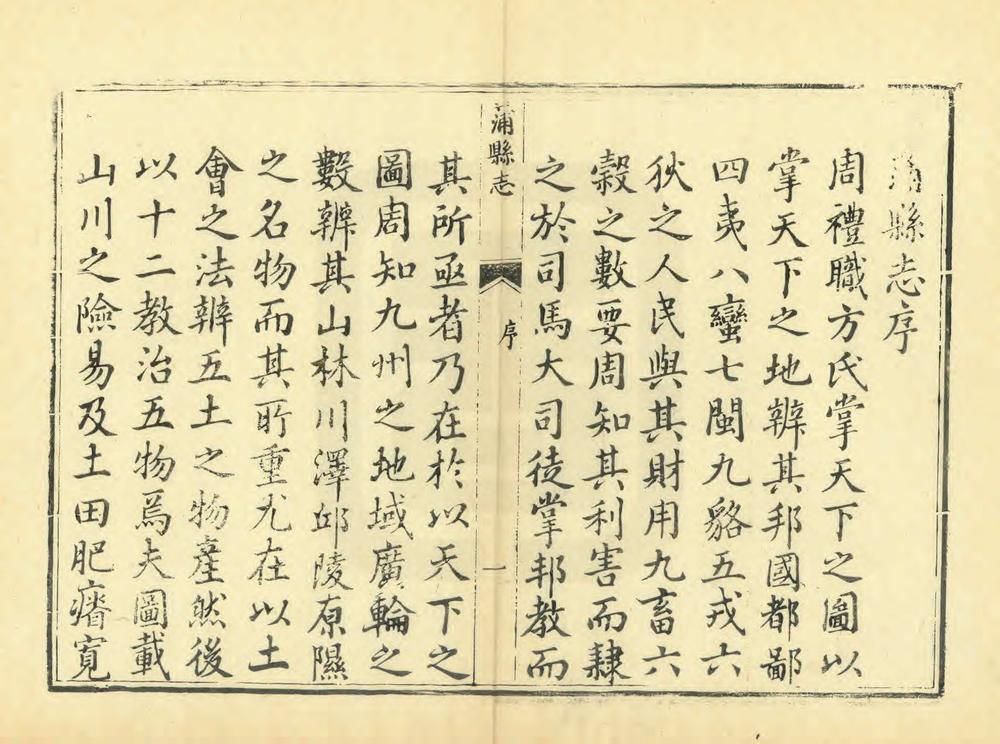 蒲縣志序
周禮職方氏掌天下之圖以
掌天下之地辨其邦國都鄙
四夷八蠻七閩九貉五戎六
狄之人民與其財用九畜六
穀之數要周知其利害而隸
之於司馬大司徒掌邦教而
蒲縣志
序
一
其所亟者乃在於以天下之
圖周知九州之地域廣輪之
數辨其山林川澤邱陵原隰
之名物而其所重尤在以土
會之法辨五土之物產然後
以十二教治五物焉夫圖載
山川之險易及土田肥瘠寬